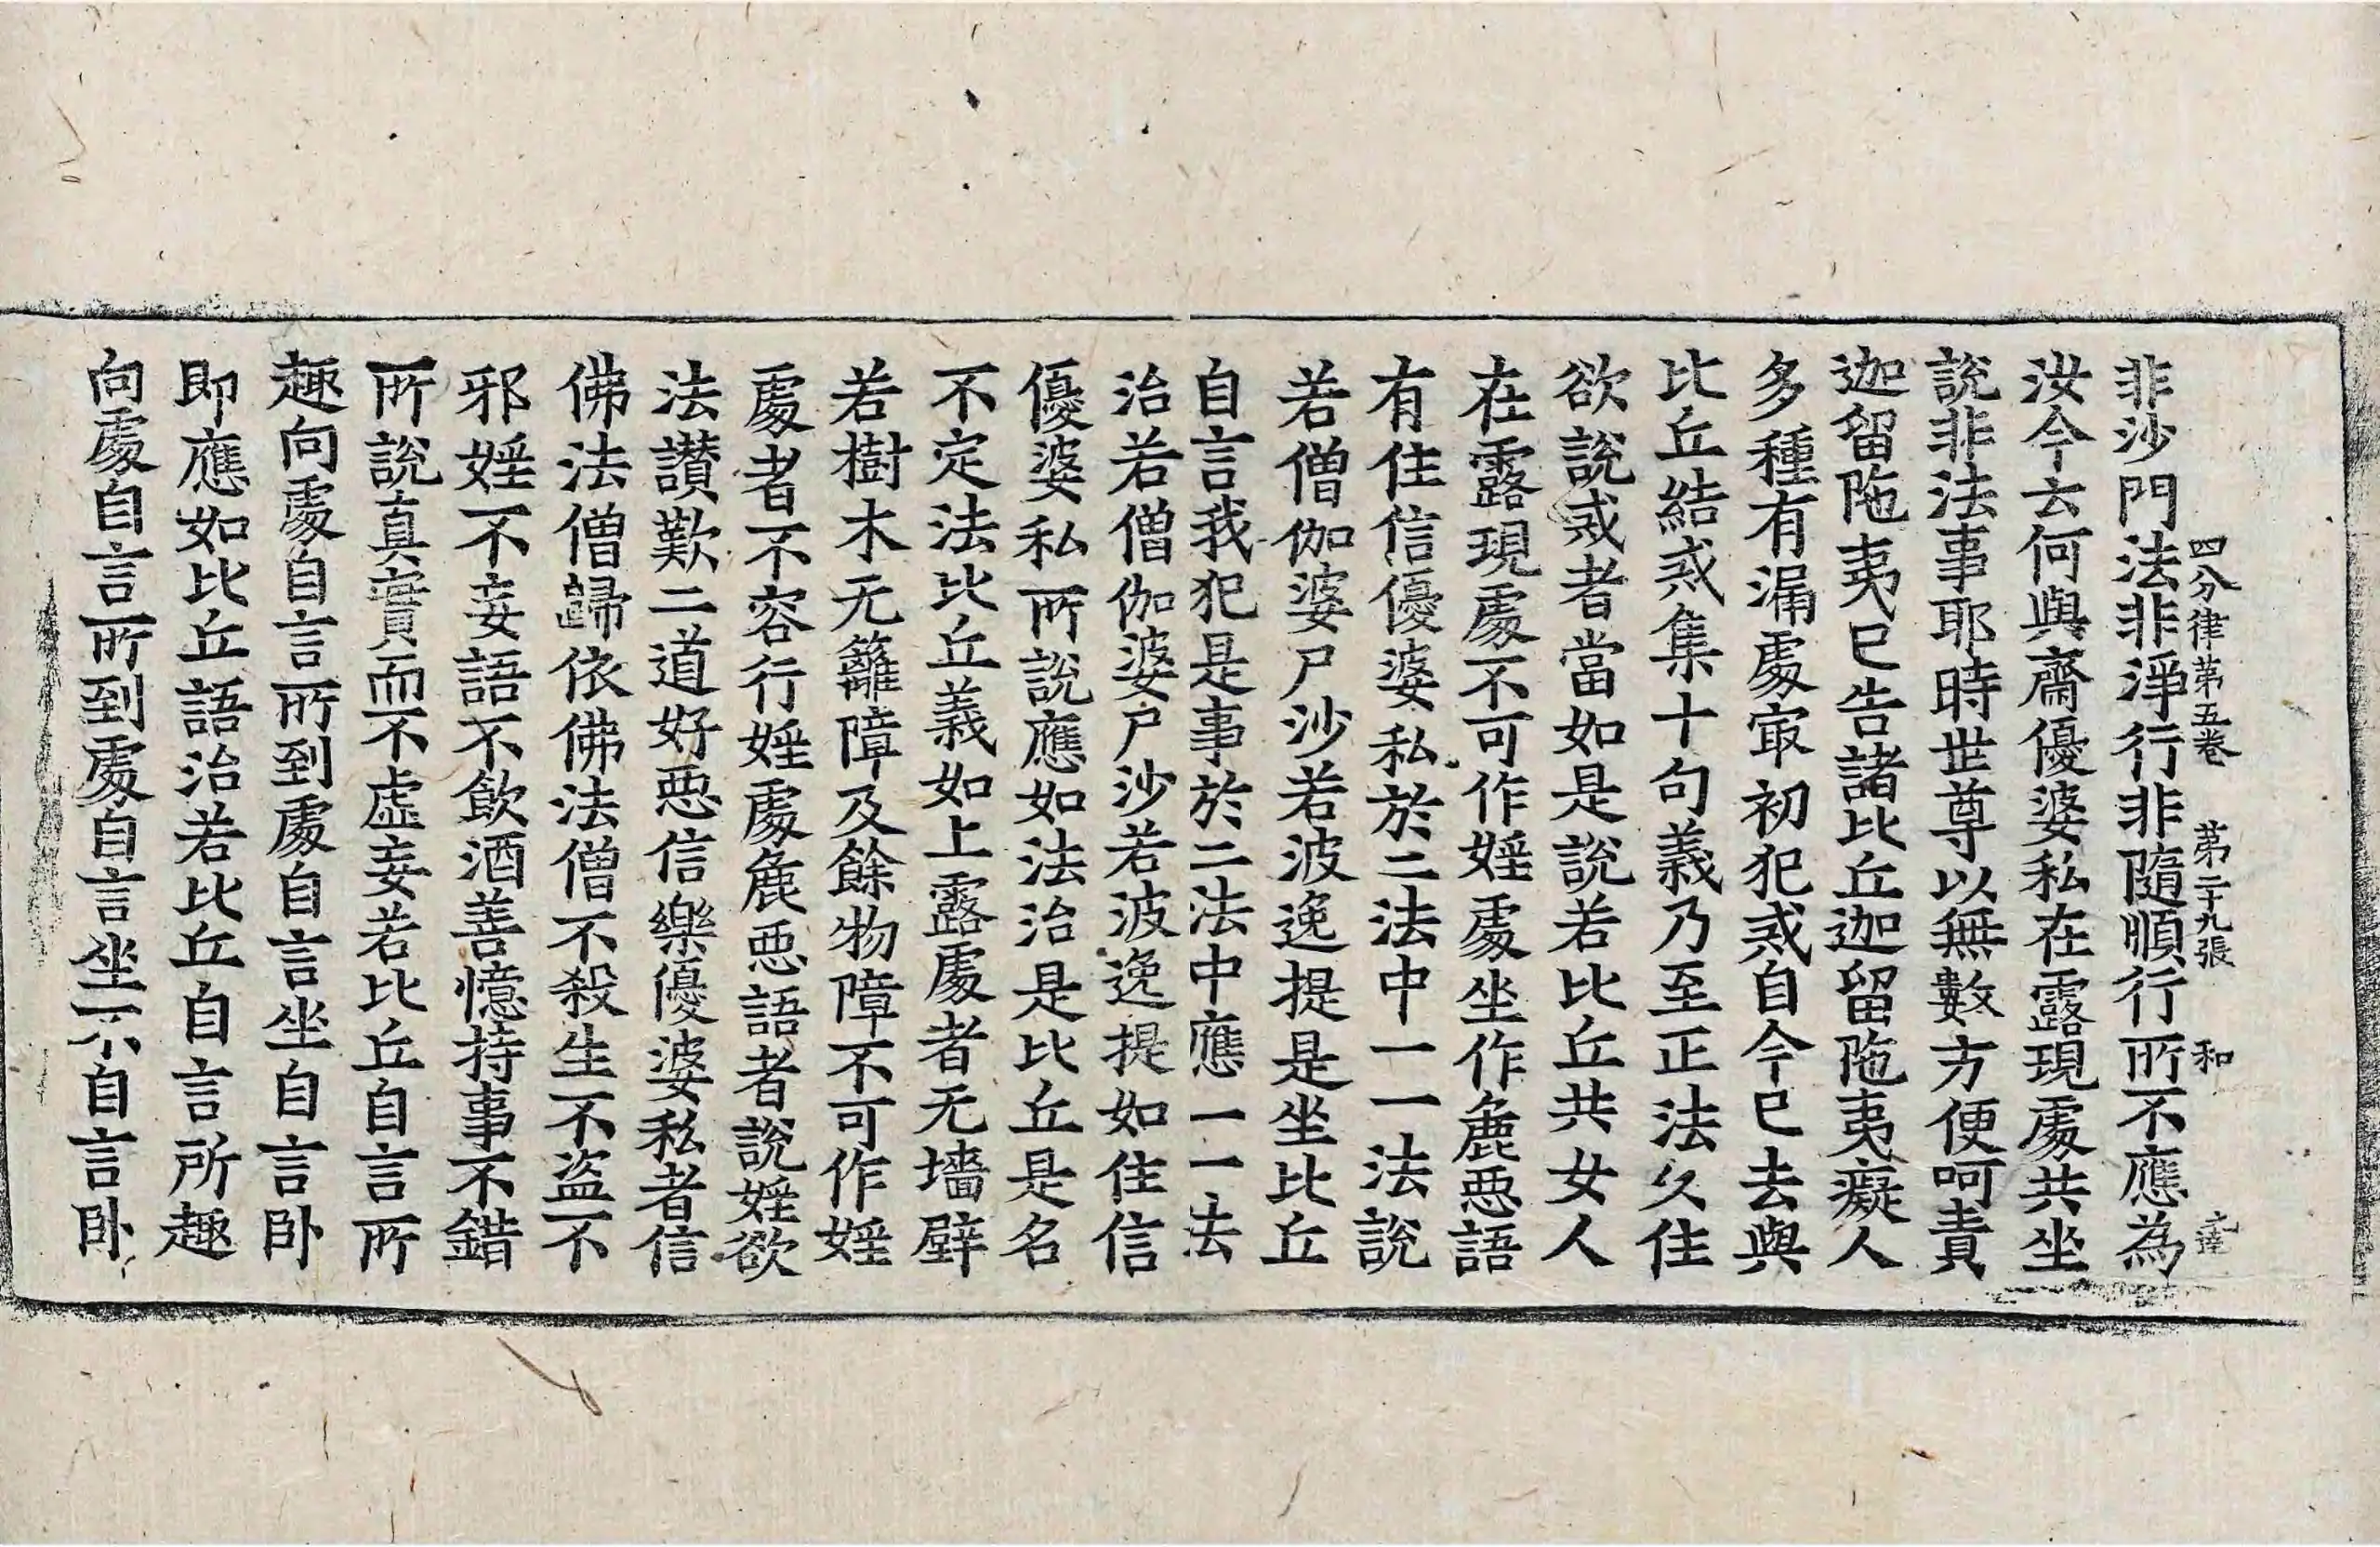 非沙門法非淨行非隨順行所不應為
四分律第五卷 第二十九張 和
汝今云何與齋優婆私在露現處共坐
說非法事耶時世尊以無數方便呵責
迦留陁夷已告諸比丘迦留陁夷癡人
多種有漏處冣初犯戒自今已去與
比丘結戒集十句義乃至正法久住
欲說戒者當如是說若比丘共女人
在露現處不可作婬處坐作麁惡語
有住信優婆私於二法中一一法說
若僧伽婆尸沙若波逸提是坐比丘
自言我犯是事於二法中應一一法
治若僧伽婆尸沙若波逸提如住信
優婆私所說應如法治是比丘是名
不定法比丘義如上露處者无墻壁
若樹木无籬障及餘物障不可作婬
處者不容行婬處麁惡語者說婬欲
法讚歎二道好惡信樂優婆私者信
佛法僧歸依佛法僧不殺生不盜不
邪婬不妄語不飲酒善憶持事不錯
所說真實而不虛妄若比丘自言所
趣向處自言所到處自言坐自言卧
即應如比丘語治若比丘自言所趣
向處自言所到處自言坐不自言卧